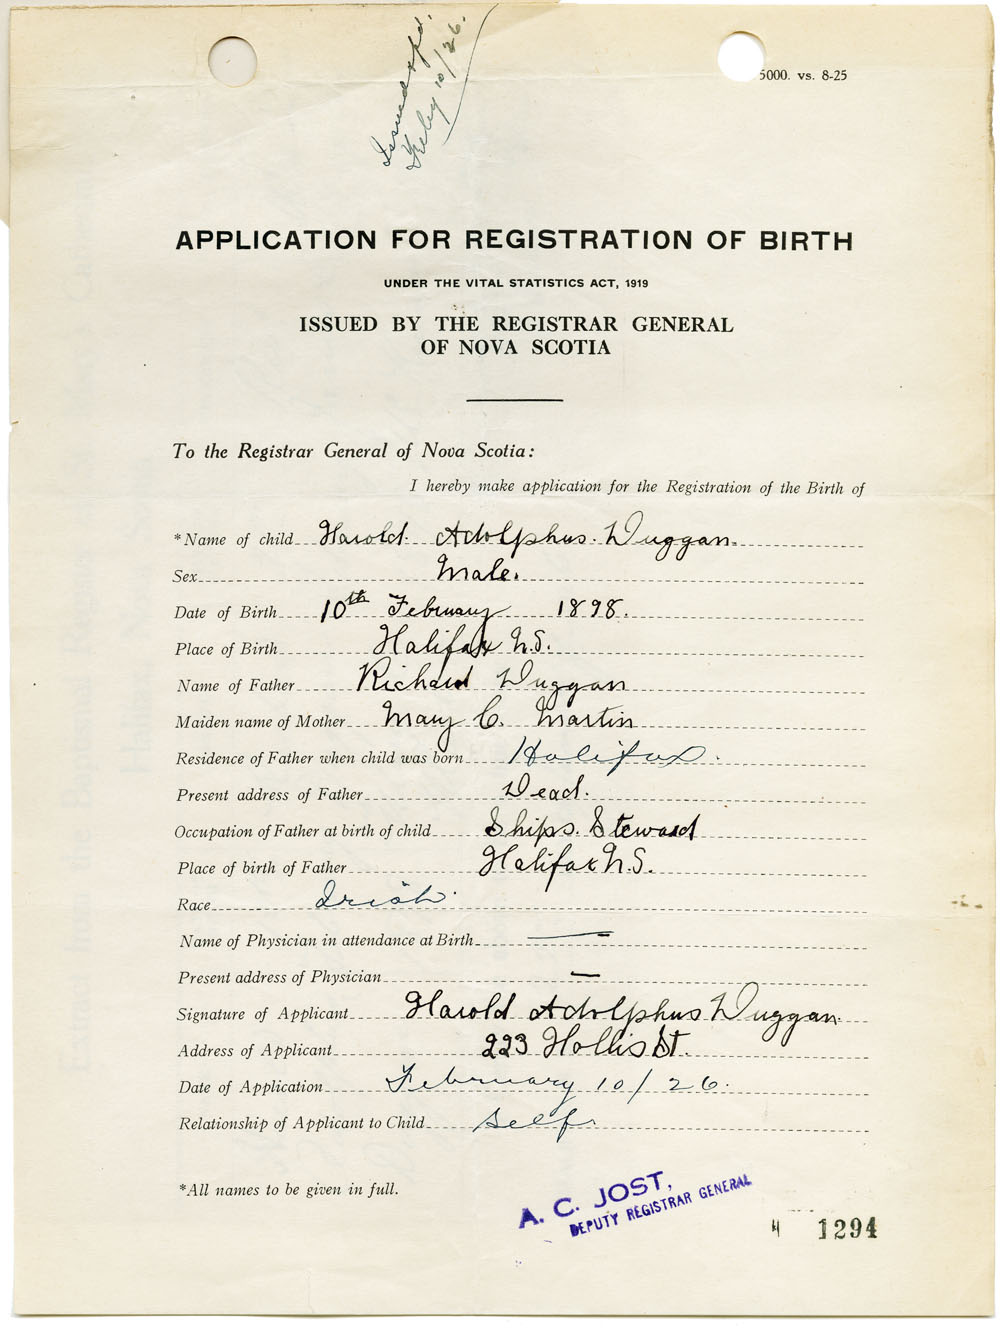 Issued & pd.
Feby 10/26.
5000. vs. 8-25
APPLICATION FOR REGISTRATION OF BIRTH
UNDER THE VITAL STATISTICS ACT, 1919
ISSUED BY THE REGISTRAR GENERAL
OF NOVA SCOTIA
To the Registrar General of Nova Scotia:
I hereby make application for the Registration of the Birth of
*Name of child Harold Adolphus Duggan
Sex Male.
Date of Birth 10th February 1898.
Place of Birth Halifax N.S.
Name of Father Richard Duggan
Maiden name of Mother Mary C. Martin
Residence of Father when child was born Halifax.
Present address of Father Dead.
Occupation of Father at birth of child Ships. Steward
Place of birth of Father Halifax N.S.
Race Irish.
Name of Physician in attendance at Birth —
Present address of Physician —
Signature of Applicant Harold Adolphus Duggan.
Address of Applicant 223 Hollis St.
Date of Application February 10/26.
Relationship of Applicant to Child Self.
*All names to be given in full.
A. C. JOST,
DEPUTY REGISTRAR GENERAL
1294